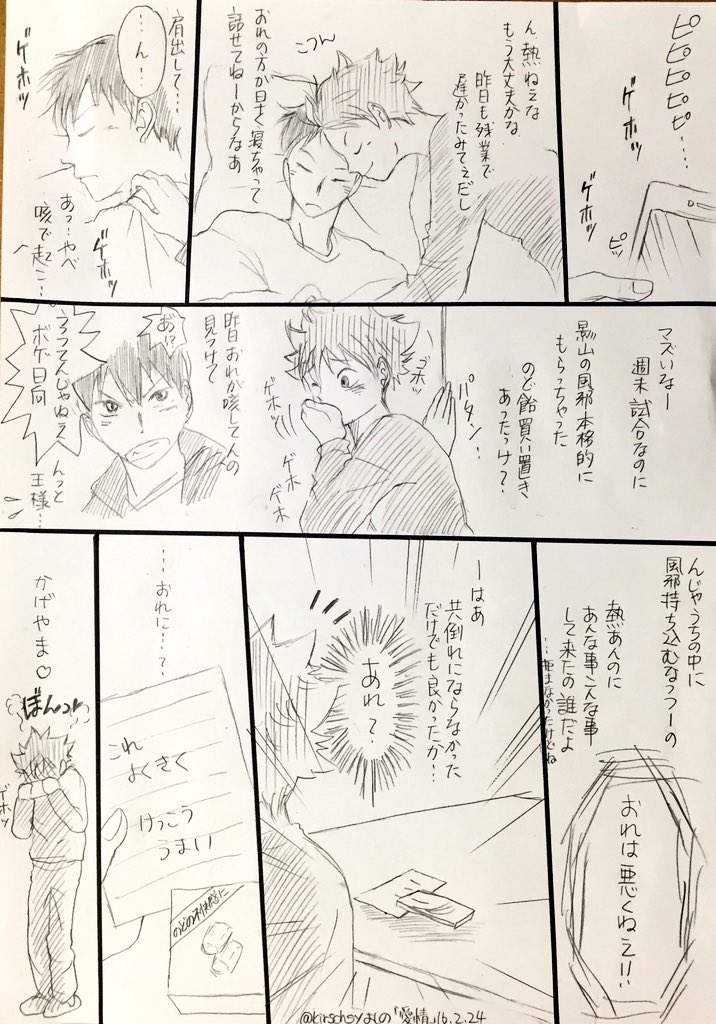 ピピピピピ……
ゲホッ
ゲホッ
ピッ
ん、熱ねえな
もう大丈夫かな
昨日も残業で
遅かったみてぇだし
こつん
おれの方が早く寝ちゃって
話せてねーからなあ
…ん…
肩出して…
ゲホッ
あっ…やべ
咳で起こ…
ゲホッ
マズいなー
週末試合なのに
影山の風邪本格的に
もらっちゃった
のど飴買い置き
あったっけ?
パタン…
ゴホッ
ゲホッ
ゲホ
ゲホ
昨日おれが咳してんの
見つけて
あ"!?
うつってんじゃねえ
ボゲ日向
んっと
王様…
んじゃうちの中に
風邪持ち込むなっつーの
熱あんのに
あんな事こんな事
して来たの誰だよ
…拒まなかったけどね
おれは悪くねえ!!
ーはあ
共倒れにならなかった
だけでも良かったか…
あれ?
…おれに…?
これ
よくきく
けっこう
うまい
のどの不快感に
かげやま♡
ぼんっ
ゲホッ
@kirschsy よしの「愛情」16.2.24